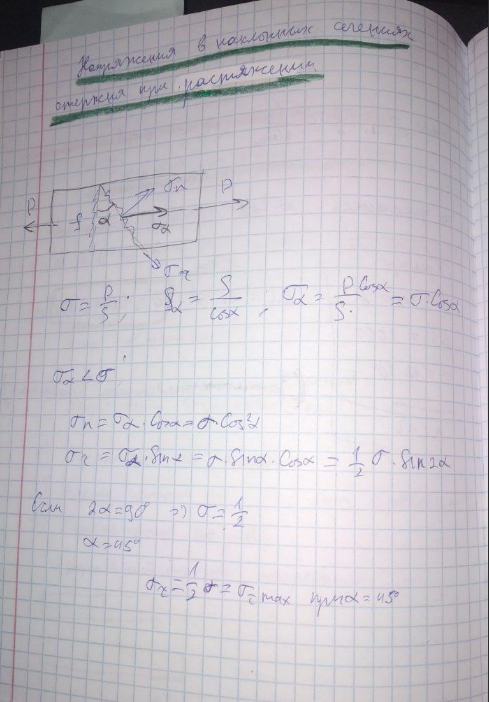 Напряжения в наклонных сечениях
стержня при растяжении.
P S α σn σα στ P
σ = P/S; Sα = S/cosα; σα = P·cosα/S = σ·cosα
σα < σ
σn = σα·cosα = σ·cos²α
στ = σα·sinα = σ·sinα·cosα = 1/2 σ·sin2α
Если 2α = 90° => σ = 1/2
α = 45°
στ = 1/2 σ = στ max при α = 45°